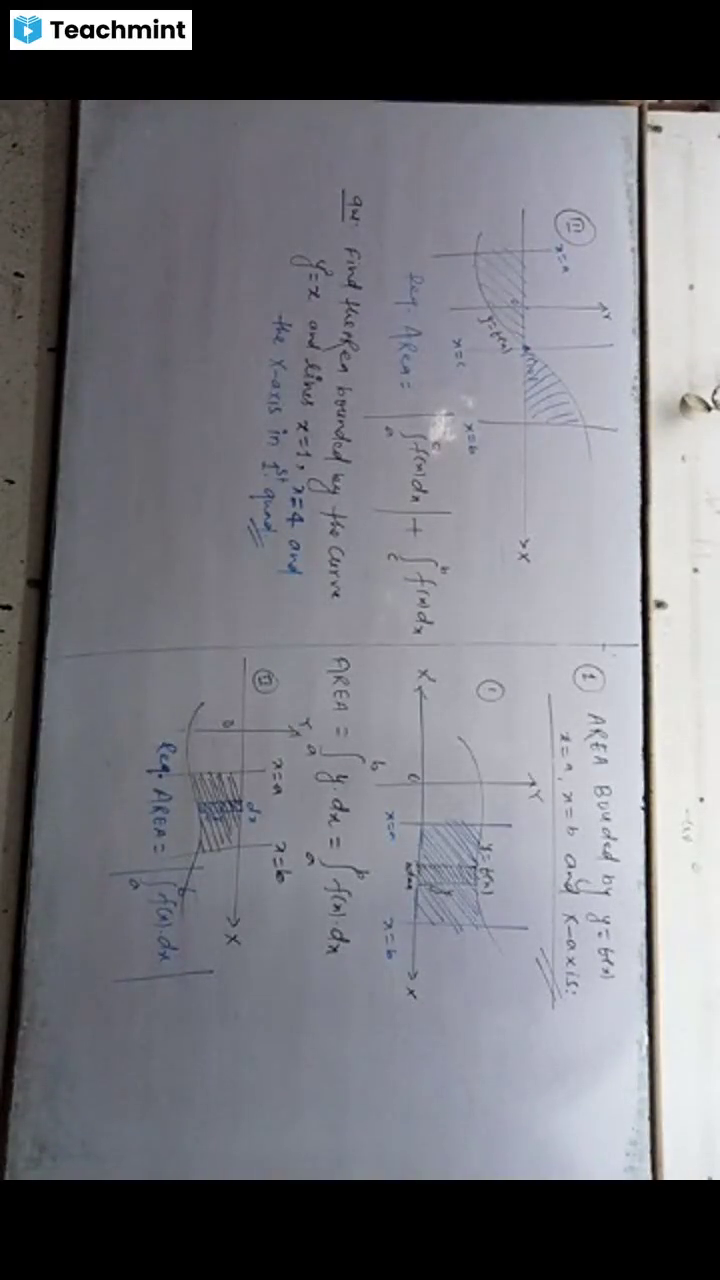 Teachmint
① AREA Bounded by y=f(x)
x=a, x=b and X-axis:
①
Y
y=f(x)
y
X
O
x=a
x=b
X
AREA = ∫ₐᵇ y.dx = ∫ₐᵇ f(x).dx
Ⅱ
Y
O
x=a
dx
x=b
X
Req. AREA = |∫ₐᵇ f(x).dx|
Ⅲ
x=a
Y
y=f(x)
x=c
x=b
X
Req. AREA = |∫ₐᶜ f(x)dx| + ∫꜀ᵇ f(x)dx
Find the Area bounded by the curve
y=x and lines x=1, x=4 and
the X-axis in 1st quad